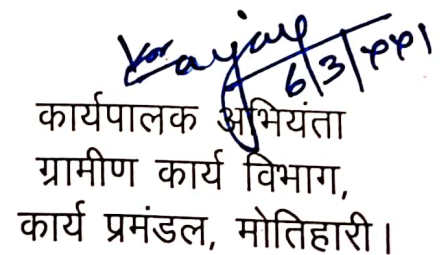 6/3/
कार्यपालक अभियंता
ग्रामीण कार्य विभाग,
कार्य प्रमंडल, मोतिहारी।